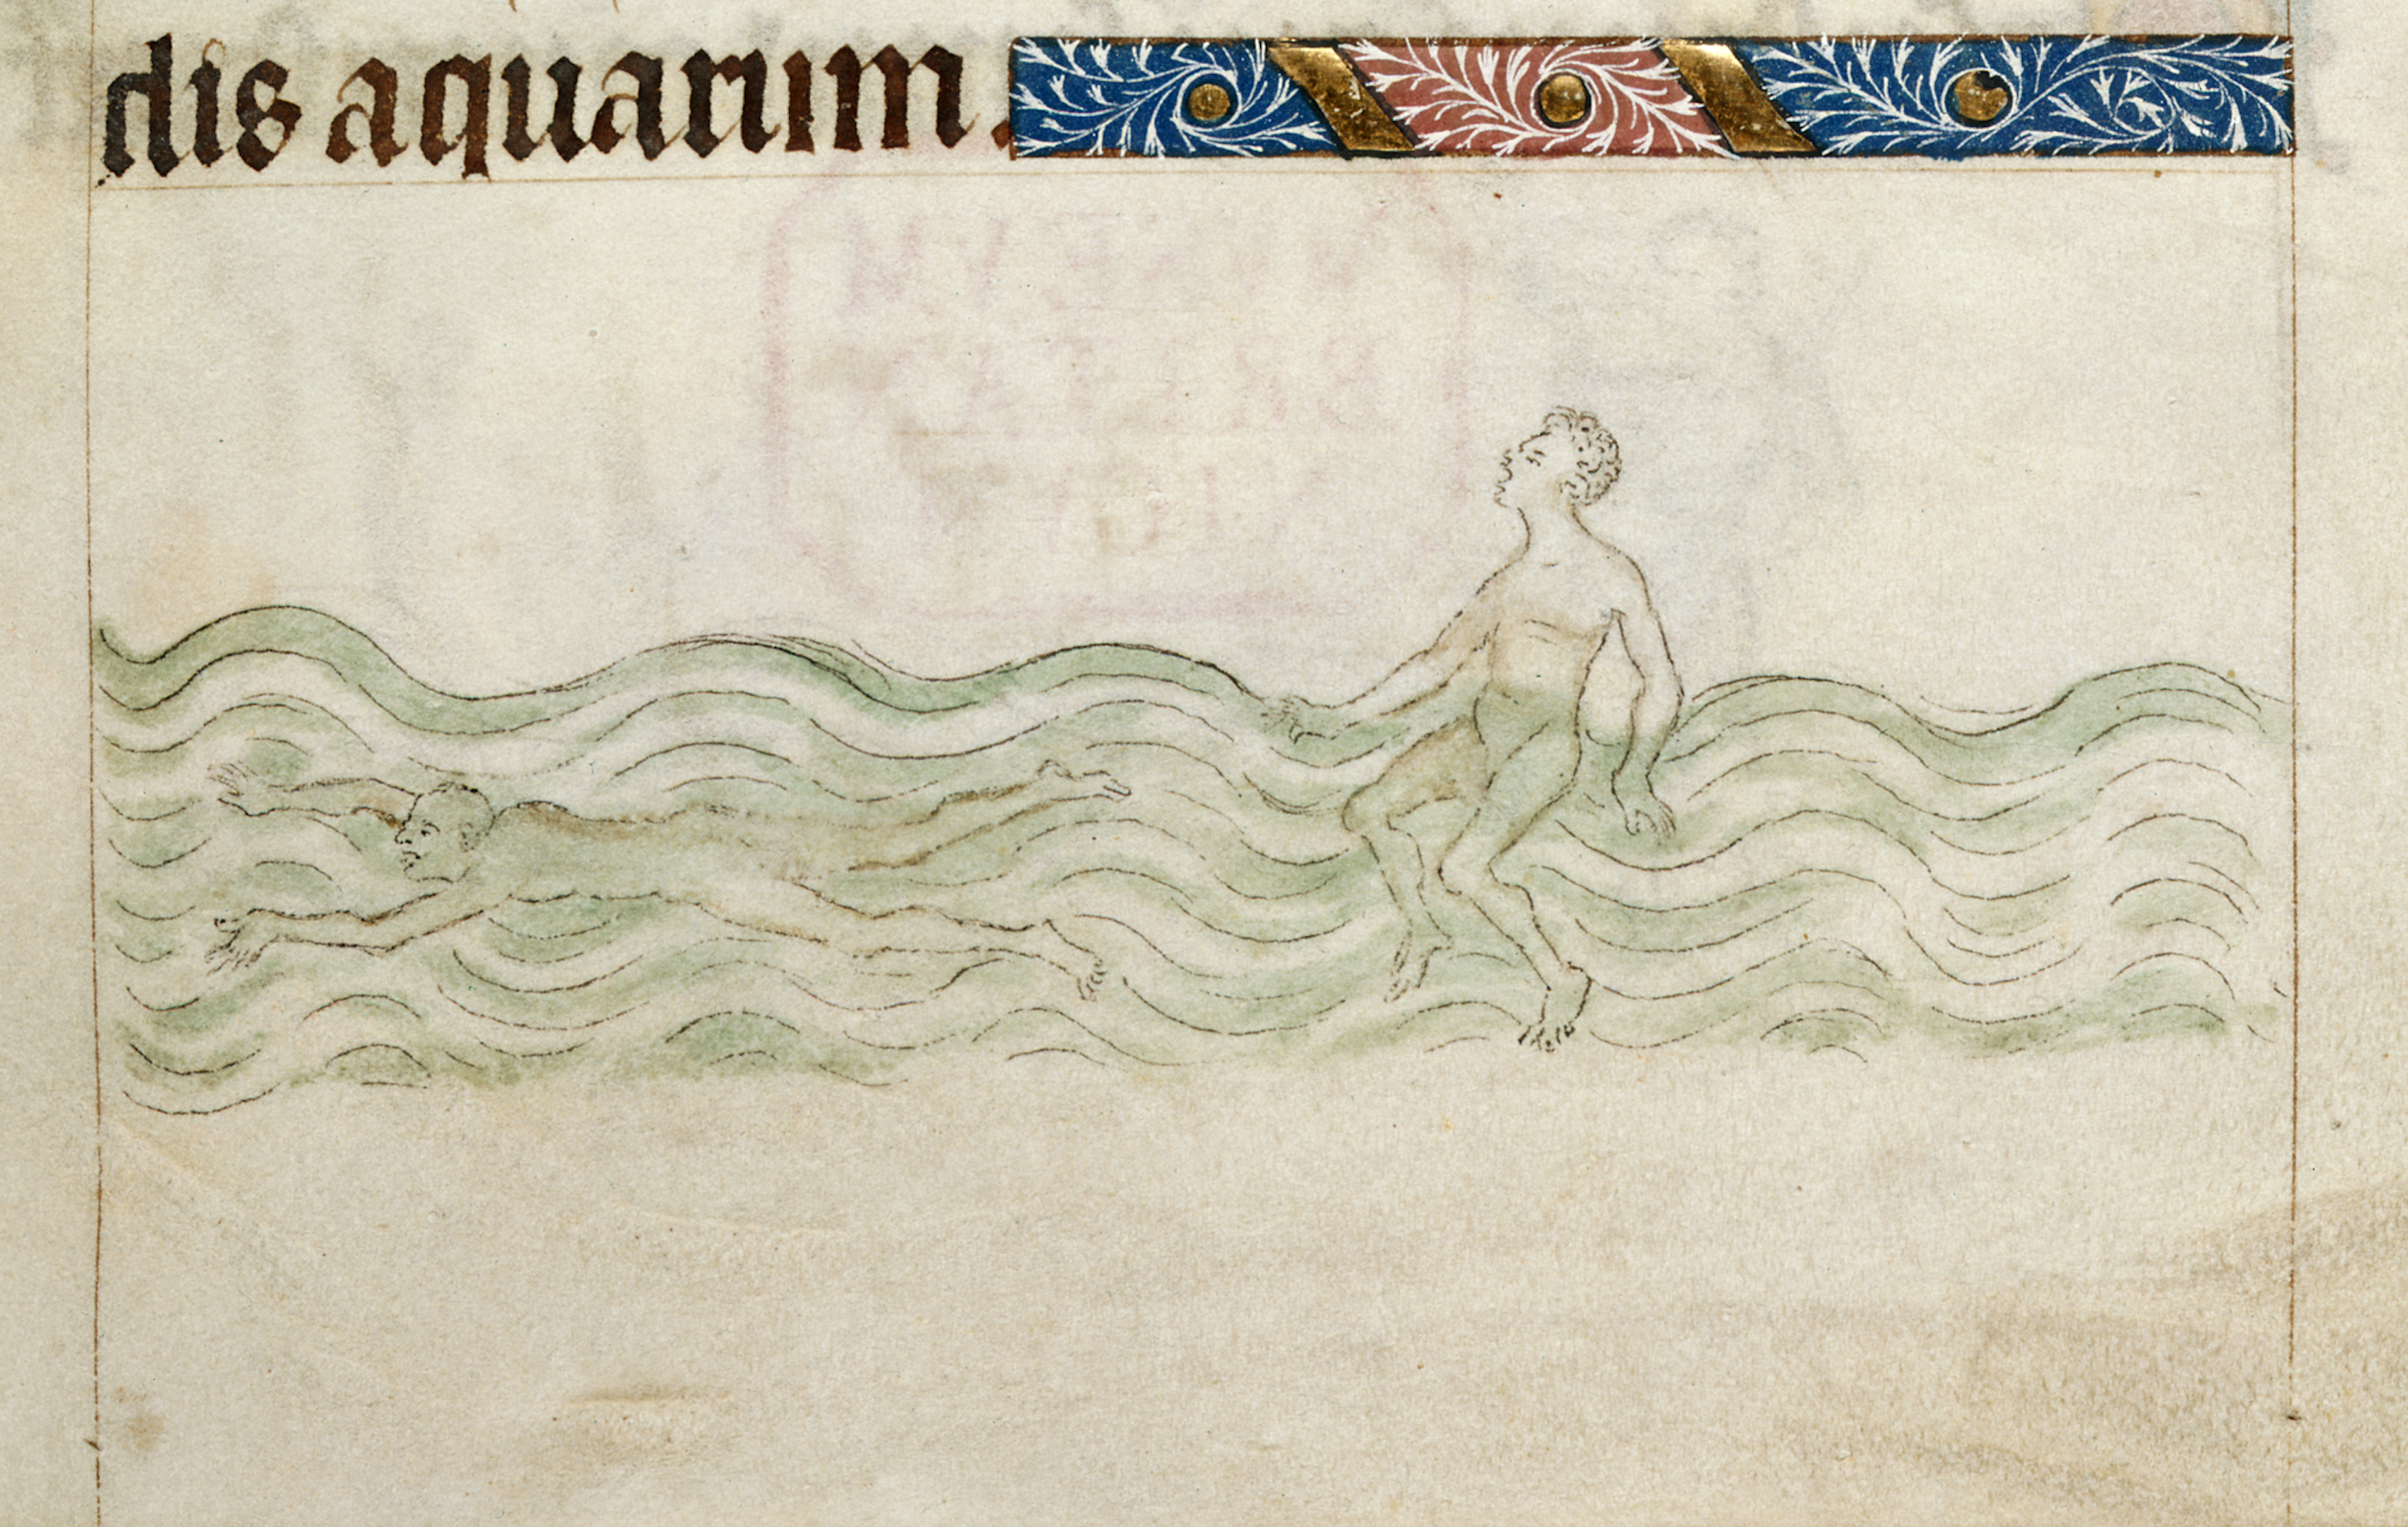 dis aquarum.